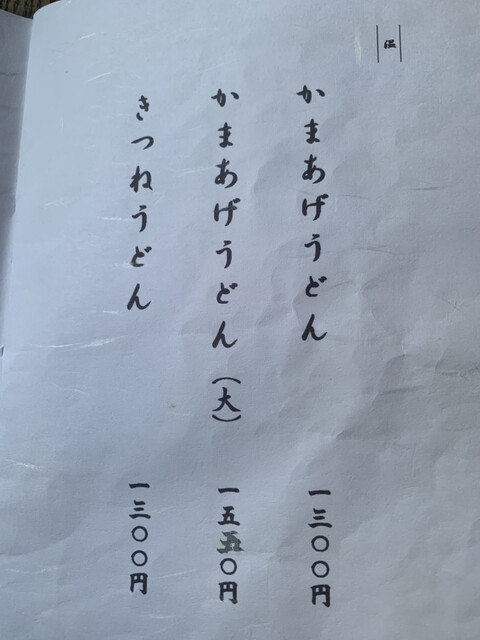 温
かまあげうどん 一三〇〇円
かまあげうどん(大) 一五五〇円
きつねうどん 一三〇〇円